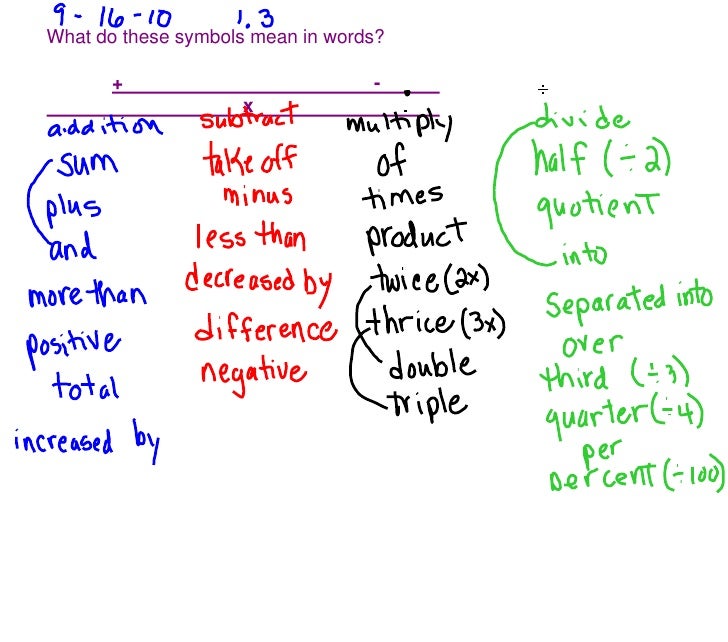 9-16-10 1.3
What do these symbols mean in words?
+ - ÷
x
addition
sum
plus
and
more than
positive
total
increased by
subtract
take off
minus
less than
decreased by
difference
negative
multiply
of
times
product
twice (2x)
thrice (3x)
double
triple
divide
half (÷2)
quotient
into
Separated into
over
third (÷3)
quarter (÷4)
per
percent (÷100)